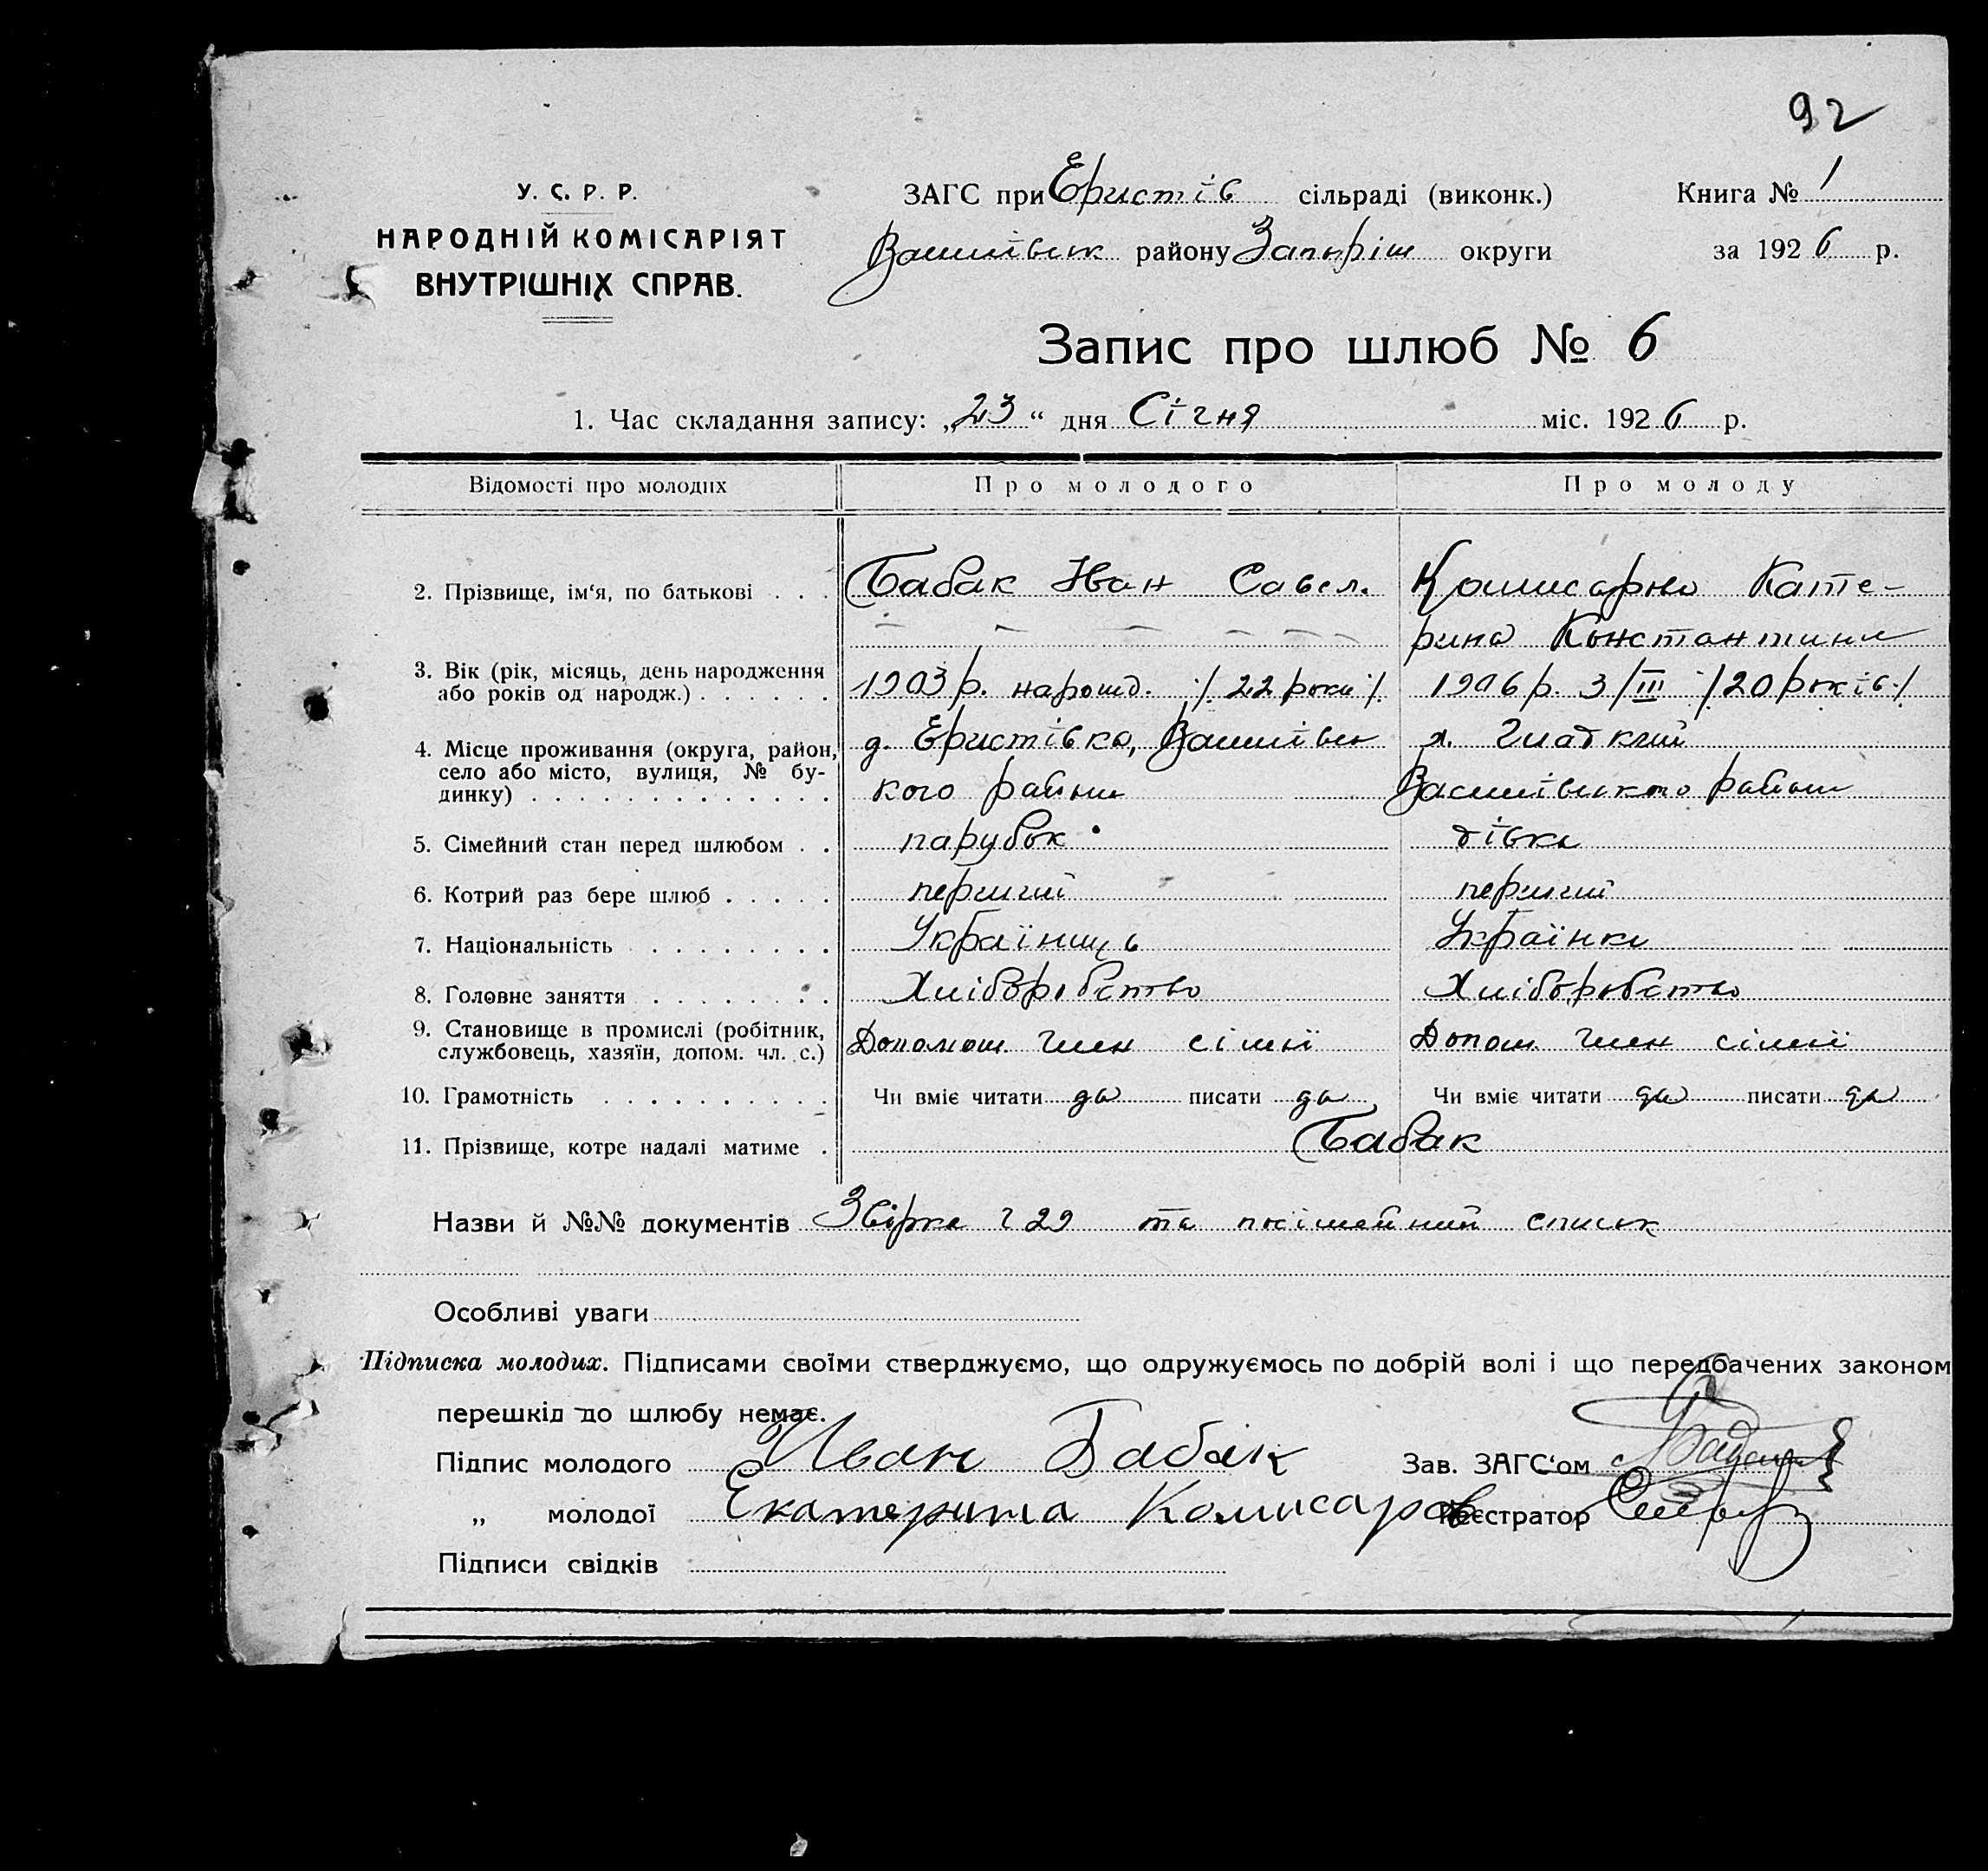 92
У. С. Р. Р.
НАРОДНІЙ КОМІСАРІЯТ
ВНУТРІШНІХ СПРАВ.
ЗАГС при Еристів сільраді (виконк.)
Василівськ району Запоріж округи
Книга № 1
за 1926 р.
Запис про шлюб № 6
1. Час складання запису: „23“ дня Січня міс. 1926 р.
Відомості про молодих Про молодого Про молоду
2. Прізвище, ім‘я, по батькові . . . Бабак Иван Савел. Комисарова Кате-
рина Константин
3. Вік (рік, місяць, день народження
або років од народж.) . . . . . . 1903 р. народ. /22 роки/ 1906 р. 3/III /20 років/
4. Місце проживання (округа, район,
село або місто, вулиця, № бу-
динку) . . . . . . . . . . . . .
д. Еристівка, Василівсь
кого району
х. Гладкий
Василівського району
5. Сімейний стан перед шлюбом . . парубок дівка
6. Котрий раз бере шлюб . . . . . перший перший
7. Національність . . . . . . . . Українець Українка
8. Головне заняття . . . . . . . . Хліборобство Хліборобство
9. Становище в промислі (робітник,
службовець, хазяїн, допом. чл. с.) Допомож. член сімї Допом. член сімї
10. Грамотність . . . . . . . . . . Чи вміє читати да писати да Чи вміє читати да писати да
11. Прізвище, котре надалі матиме . Бабак
Назви й №№ документів Звірка 29 та посімейний список
Особливі уваги
Підписка молодих. Підписами своїми стверджуємо, що одружуємось по добрій волі і що передбачених законом
перешкід до шлюбу немає.
Підпис молодого Иван Бабак Зав. ЗАГС‘ом
„ молодої Екатерина Комисаров Реєстратор
Підписи свідків